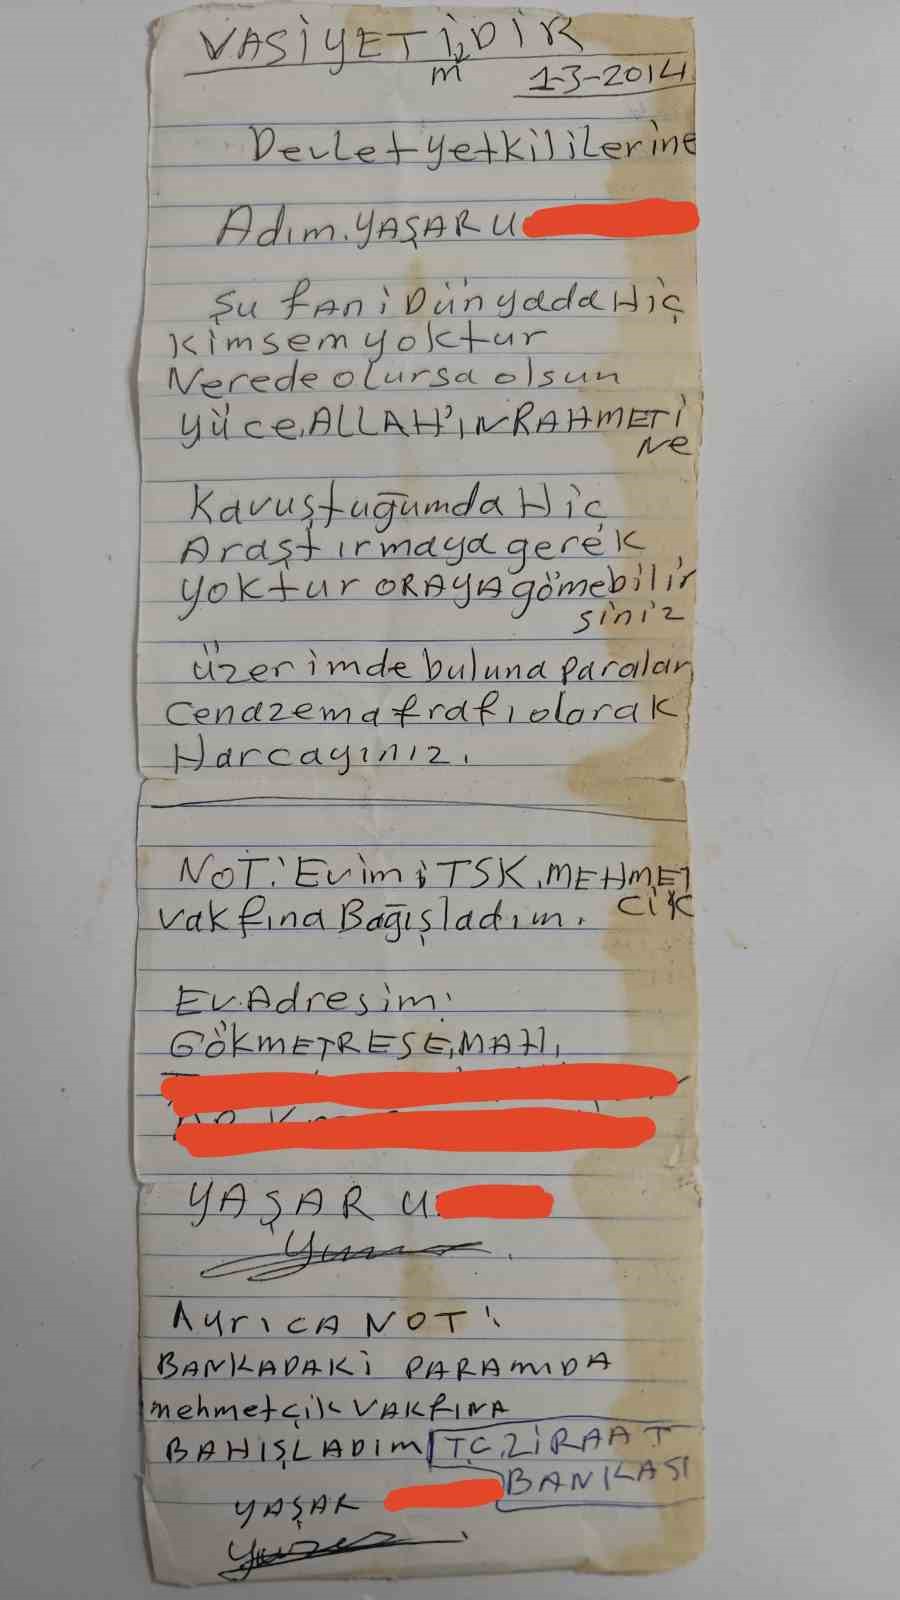 VASİYETİMDİR
1-3-2014
Devlet yetkililerine
Adım. YAŞAR U
Şu fani Dünyada Hiç
Kimsem yoktur
Nerede olursa olsun
Yüce, ALLAH'IN RAHMETİ
NE
Kavuştuğumda Hiç
Araştırmaya gerek
yoktur ORAYA gömebilir
siniz
üzerimde buluna paralar
Cenazema frafı olarak
Harcayınız.
NOT: Evimi TSK. MEHMET
CİK
vakfına Bağışladım.
Ev. Adresim:
GÖKMETRESE, MAH.
YAŞAR U
AyrıCA NOT:
BANKADAKİ PARAMIDA
mehmetçik VAKFINA
BAHIŞLADIM T.C. ZİRAAT
BANKASI
YAŞAR